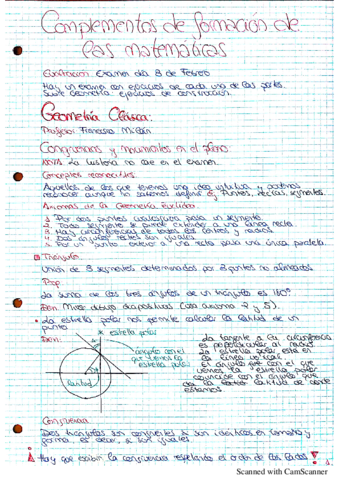 Complementos de formación de
las matemáticas
Evaluación: Examen día 8 de Febrero
Hay un examen con ejercicios de cada una de las partes.
Geometría Clásica:
Profesor: Francisco Milán
Congruencias y movimientos en el plano
La historia no cae en el examen.
Conceptos
Aquellos de los que tenemos una idea intuitiva y podemos
reconocer aunque no sabemos definir. Ej: Puntos, rectas, segmentos.
Axiomas de la Geometría Euclidea
1. Por dos puntos cualesquiera pasa un segmento.
2. Todo segmento se puede extender a una línea recta
3. Hay circunferencias de todos los centros y radios
4. Dos ángulos rectos son iguales.
5. Por un punto exterior a una recta pasa una única paralela.
Triángulo
Unión de 3 segmentos determinados por 3 puntos no alineados.
Prop
La suma de los tres ángulos de un triángulo es 180°
Dem: Mirar dibujo diapositivas (usa axioma 2 y 5).
• La estrella polar nos permite calcular la latitud de un
punto.
Dem:
* estrella polar
* estrella polar
latitud
La tangente a la circunferencia
es perpendicular al radio.
La estrella polar está en
la línea vertical.
El ángulo con el que
vemos la estrella polar
coincide con el ángulo que
da la latitud de donde
estamos.
Congruencia
Dos triángulos son congruentes si son idénticos en tamaño y
forma, es decir, si son iguales
Hay que escribir la congruencia respetando el orden de los lados
Scanned with CamScanner